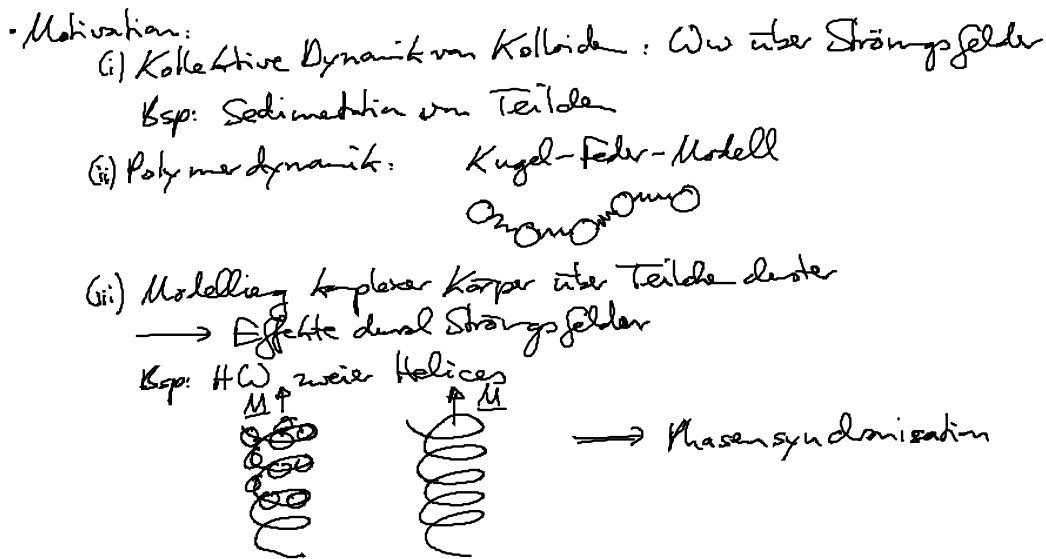 · Motivation:
(i) Kollektive Dynamik von Kolloiden : WW über Strömungsfelder
Bsp: Sedimentation von Teilchen
(ii) Polymerdynamik: Kugel-Feder-Modell
(iii) Modellierung komplexer Körper über Teilchencluster
→ Effekte durch Strömungsfelder
Bsp: HWW zweier Helices
M M
→ Phasensynchronisation